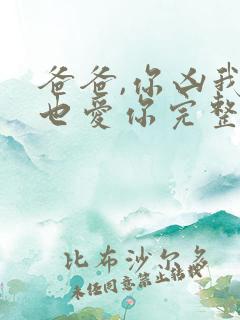 爸爸,你凶我
也爱你完整
比布沙尔多
未经同意禁止转载